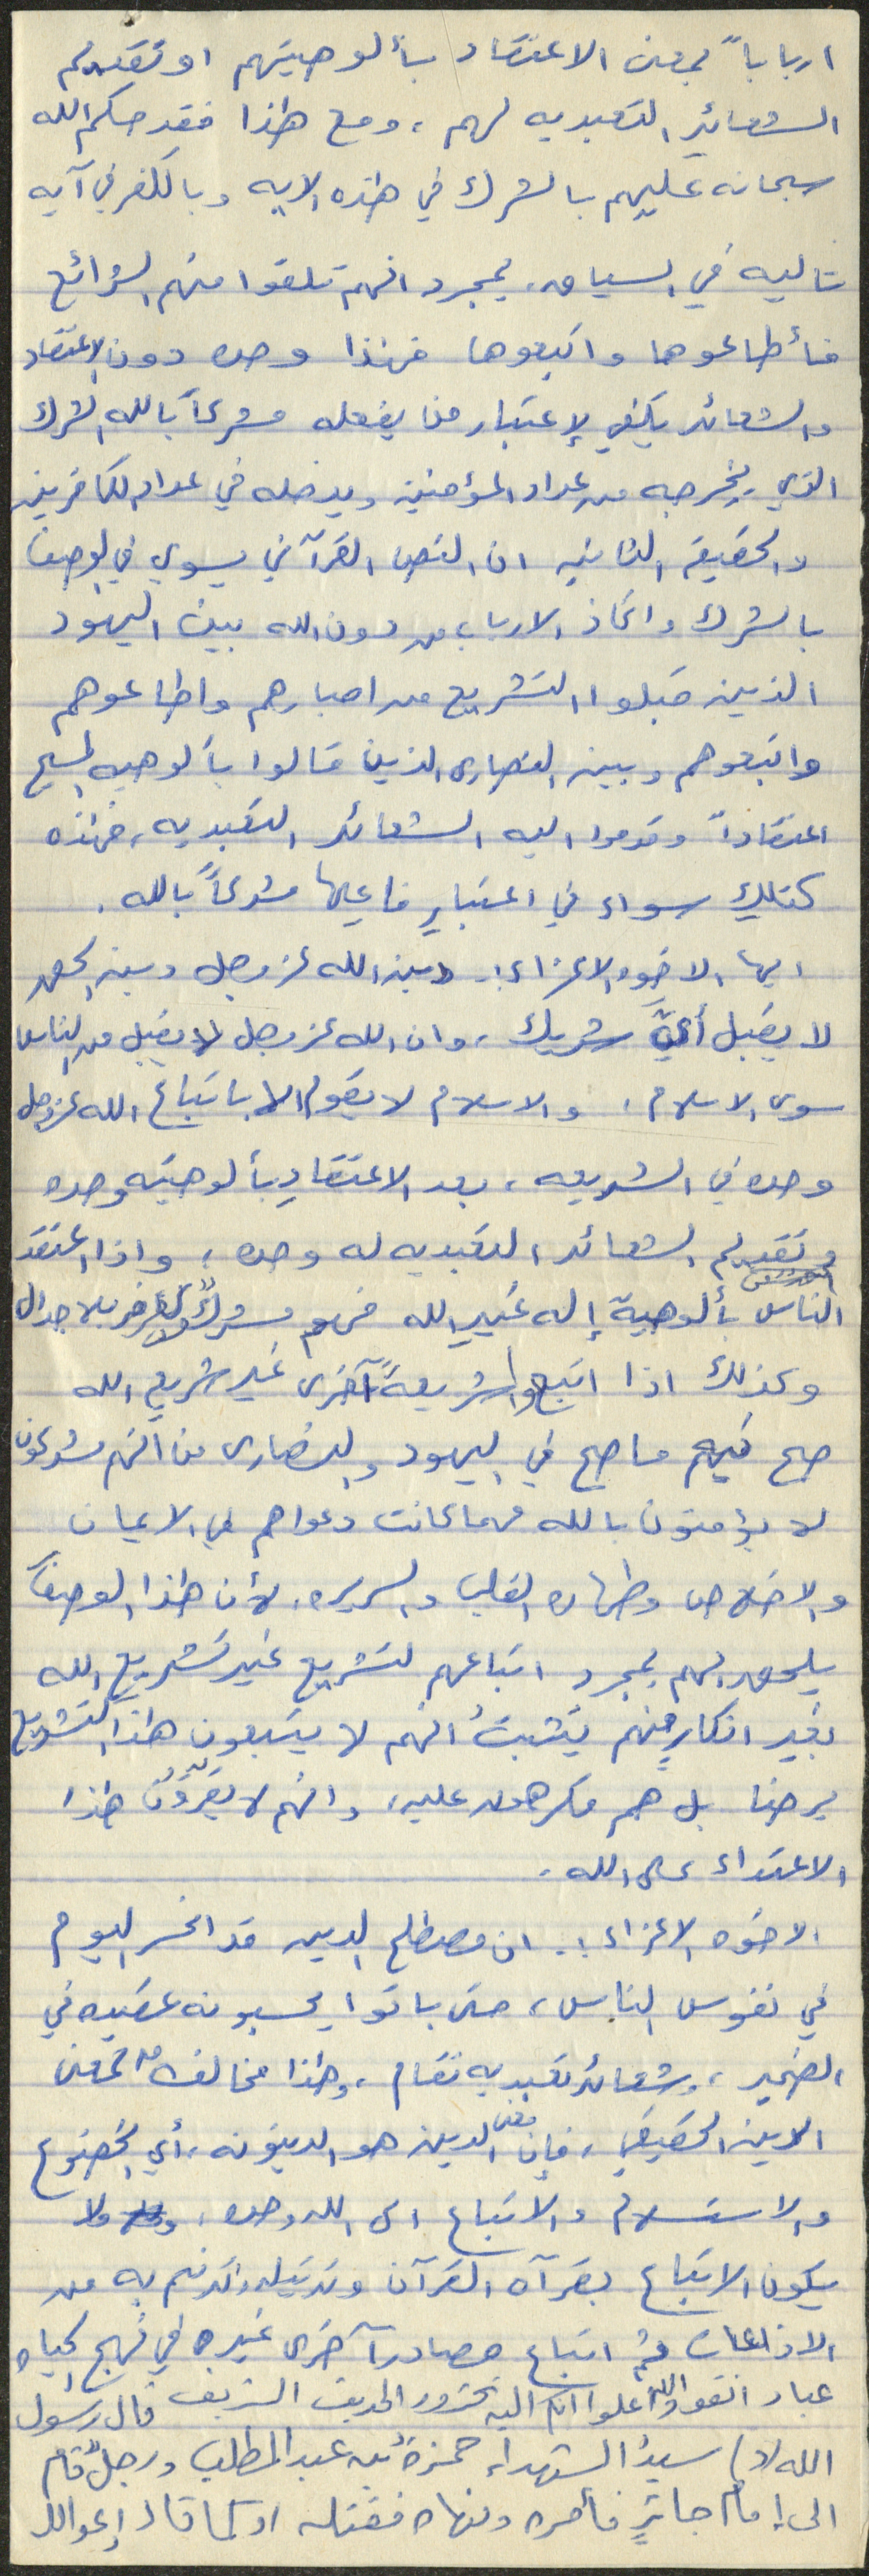 ارباباً بمعنى الاعتقاد بألوهيتهم او تقديم
الشعائر التعبديه لهم، ومع هذا فقد حكم الله
سبحانه عليهم بالشرك في هذه الايه وبالكفر في آيه
تاليه في السياق، لمجرد انهم تلقوا منهم الشرائع
فأطاعوها واتبعوها فهذا وحده دون الاعتقاد
والشعائر يكفي لإعتبار من يفعله مشركاً بالله الشرك
الذي يخرجه من عداد المؤمنين ويدخله في عداد الكافرين
والحقيقه الثانيه ان النص القرآني يسوي في الوصف
بالشرك واتخاذ الارباب من دون الله بين اليهود
الذين قبلوا التشريع من احبارهم واطاعوهم
واتبعوهم وبين النصارى الذين قالوا بألوهيه المسيح
اعتقاداً وقدموا اليه الشعائر التعبديه، فهذه
كتلك سواء في اعتبار فاعيلها مشركاً بالله.
ايها الاخوه الاعزاء:. دين الله عز وجل دين الحق
لا يقبل أيَّ شريك، وان الله عز وجل لا يقبل من الناس
سوى الاسلام، والاسلام لا يقوم الا باتباع الله عز وجل
وحده في الشريعه، بعد الاعتقادِ بألوهيته وحده
وتقديم الشعائر التعبديه له وحده، واذا اعتقد
الناس بألوهية إله غيرِ الله فهو مشركٌ وكافر بلا جدال
وكذلك اذا اتبعوا شريعةً آخرى غير شريعه الله
صح فيهم ما صح في اليهود والنصارى من انهم مشركون
لا يؤمنون بالله مهما كانت دعواهم في الايمان
والاخلاص وطهاره القلب والسريره، لأن هذا الوصفَ
يلحق بهم بمجرد اتباعهم لتشريع غير تشريع الله
بغير انكارٍ منهم يَثبتُ انهم لا يتبعون هذا التشريع
برضا بل هم مكرهون عليه، وانهم لا يقرُّون هذا
الاعتداء على الله.
الاخوه الاعزاء:. ان مصطلح الدين قد انحسر اليوم
في نفوس الناس، حتى باتوا يحسبونه عقيده في
الضمير، وشعائر تعبديه تقام، وهذا مخالف لمعنى
الدين الحقيقي، فإن معنى الدين هو الدينونه، أي الخضوع
والاستسلام والاتباع الى الله وحده، ولا
يكون الاتباع بقرآه القرآن وترتيله والترنم به من
الاذاعات ثم اتباع مصادر آخرى غيره في نهج الحياه
عباد اتقوا الله واعلموا انكم اليه تحشرون الحديث الشريف قال رسول
الله (ص) سيدُ الشهداء حمزةُ بن عبد المطلب ورجلٌ قام
الى إمام جائرٍ فأمره ونهاه فقتله او كما قال إدعوا الله